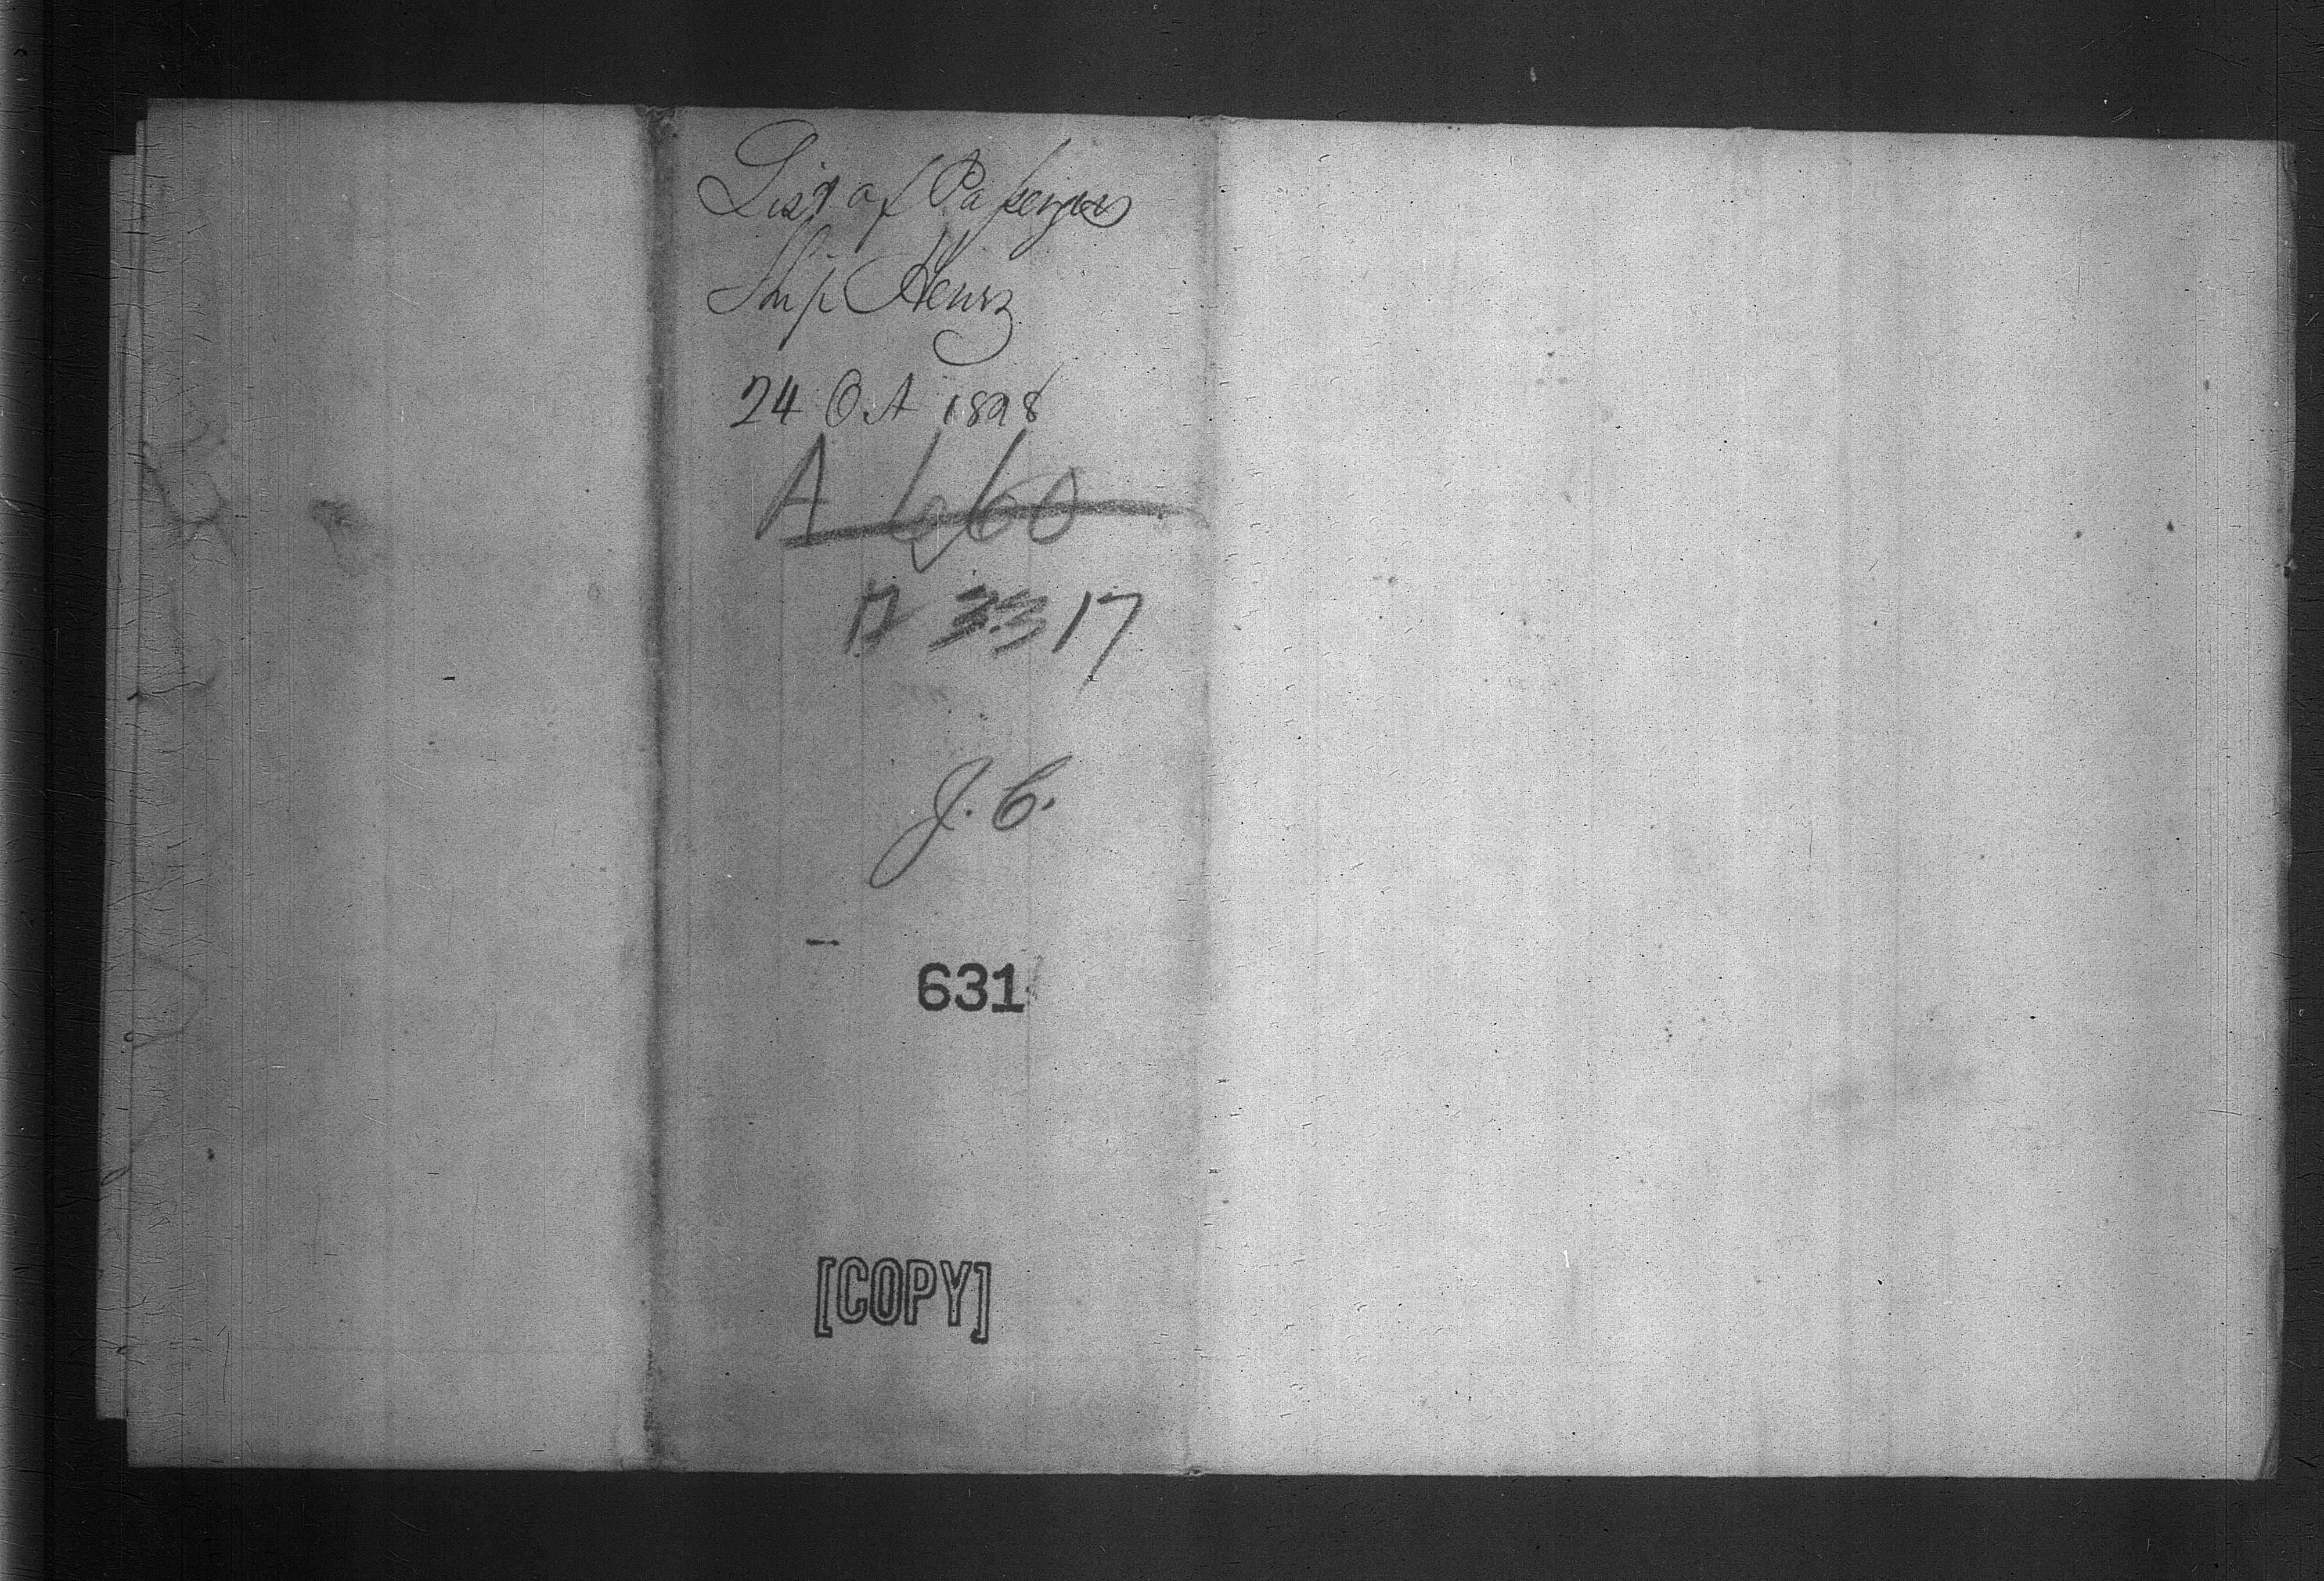 List of Passengers
Ship Henry
24 Oct 1828
A 660
17
J. C.
631
[COPY]